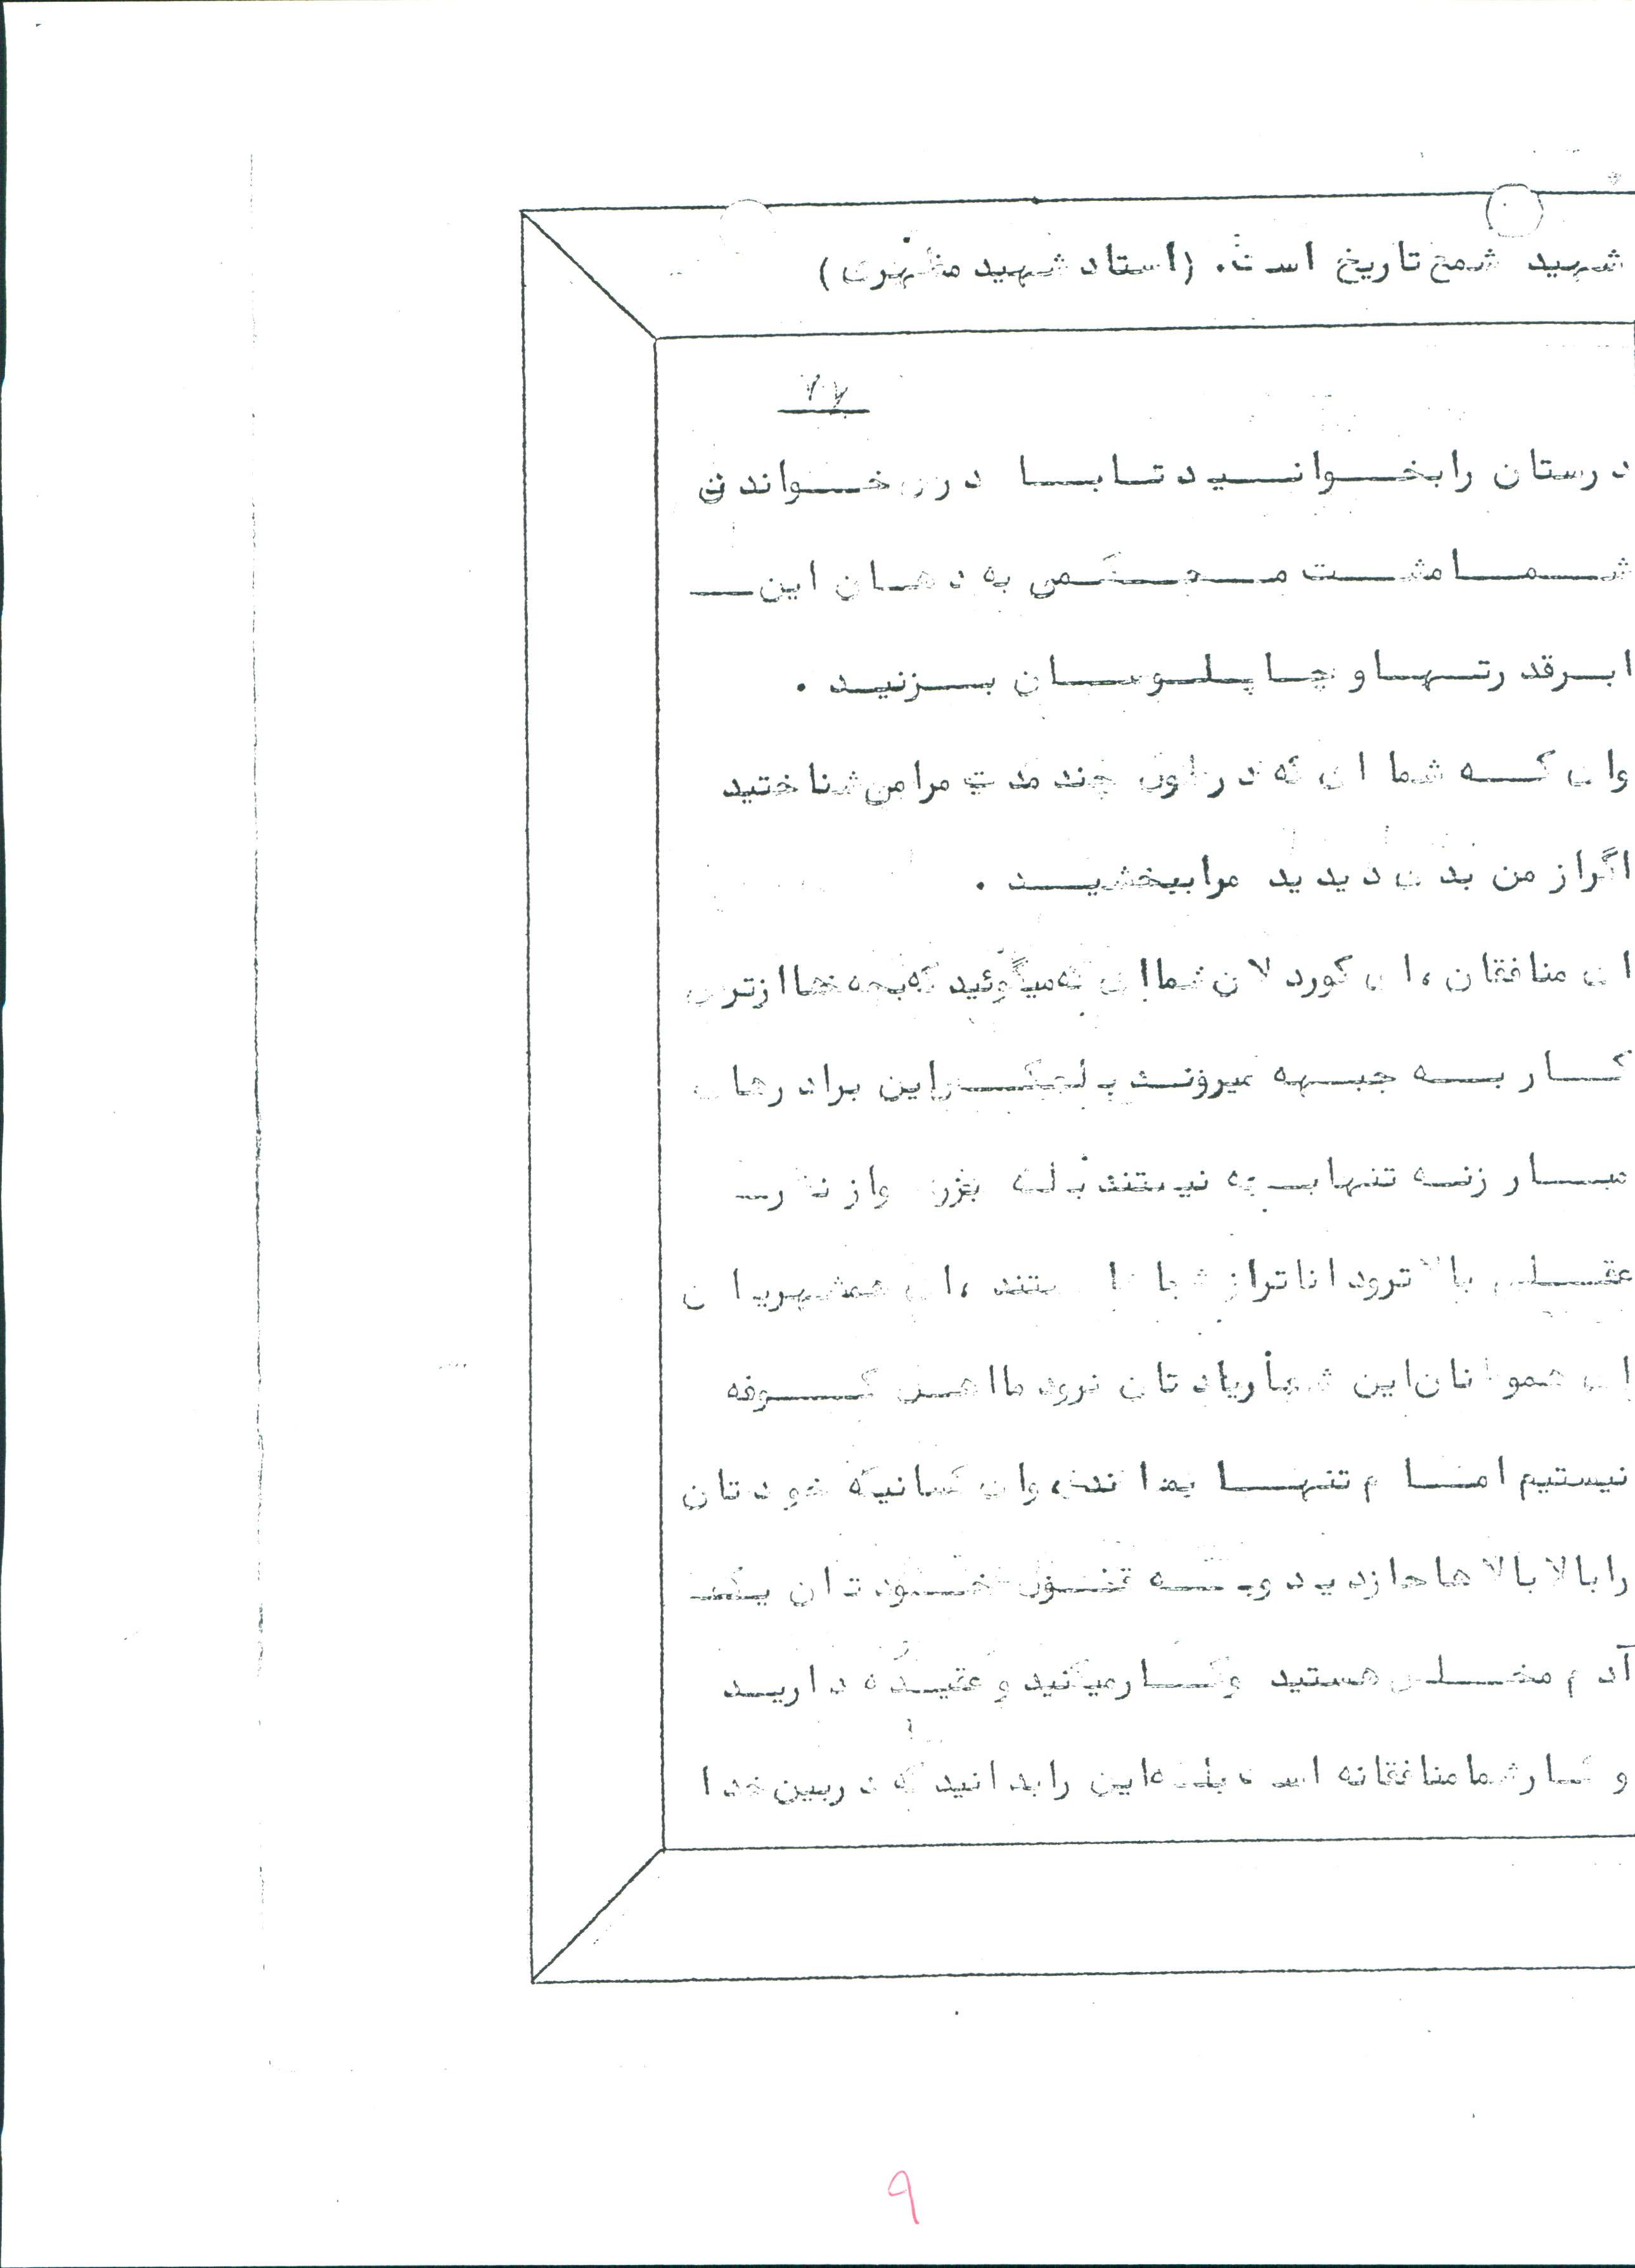 شهید شمع تاریخ است. (استاد شهید مطهری)
۲۷
درستان را بخوانید تا با درس خواندن
شما مشت محکمی به دهان این
ابرقدرتها و چاپلوسان بزنید .
وای که شما ای که در طول چند مدت مرا می شناختید
اگر از من بدی دیدید مرا ببخشید .
ای منافقان ، ای کوردلان شما ای که میگوئید که بچه ها از ترس
کار به جبهه میروند این برادرهای
مبارز نه تنها بچه نیستند بلکه بزرگ و از نظر
عقلی بالاتر و داناتر از شما ها هستند ، ای همشهریان
ای این شعار یادتان نرود ما اهل کوفه
نیستیم امام تنها بماند، وای کسانیکه خودتان
را بالا بالاها جا زدید و به خودتان یک
آدم مخلص هستید و کار میکنید و عقیده دارید
و کار شما منافقانه است بلکه این را بدانید که در بین خدا
۹